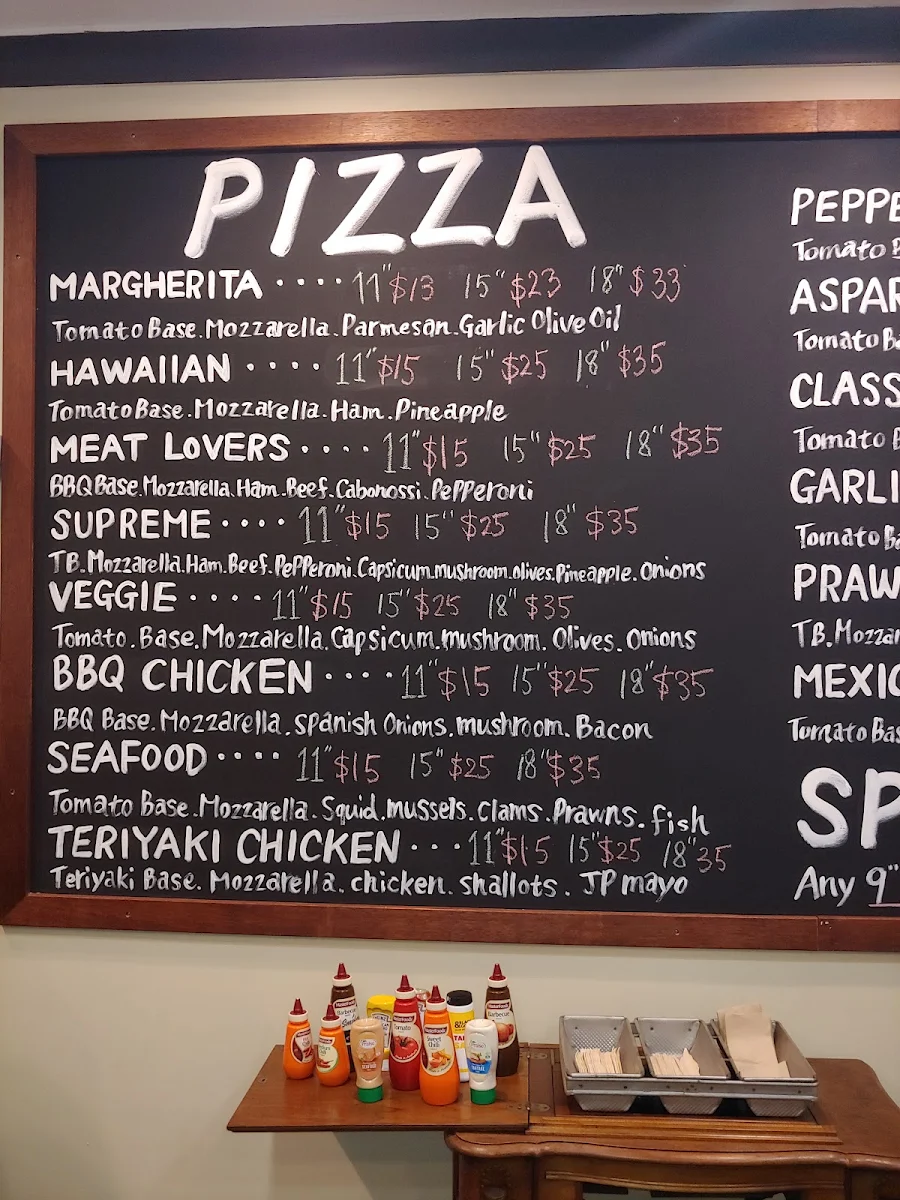 PIZZA
MARGHERITA ···· 11" $13 15" $23 18" $33
Tomato Base. Mozzarella. Parmesan. Garlic Olive Oil
HAWAIIAN ···· 11" $15 15" $25 18" $35
Tomato Base. Mozzarella. Ham. Pineapple
MEAT LOVERS ···· 11" $15 15" $25 18" $35
BBQ Base. Mozzarella. Ham. Beef. Cabonossi. Pepperoni
SUPREME ···· 11" $15 15" $25 18" $35
TB. Mozzarella. Ham. Beef. Pepperoni. Capsicum. mushroom. olives. Pineapple. Onions
VEGGIE ···· 11" $15 15" $25 18" $35
Tomato. Base. Mozzarella. Capsicum. mushroom. Olives. Onions
BBQ CHICKEN ···· 11" $15 15" $25 18" $35
BBQ Base. Mozzarella. spanish Onions. mushroom. Bacon
SEAFOOD ···· 11" $15 15" $25 18" $35
Tomato Base. Mozzarella. Squid. mussels. clams. Prawns. fish
TERIYAKI CHICKEN ··· 11" $15 15" $25 18" 35
Teriyaki Base. Mozzarella. chicken. shallots. JP mayo
PEPPE
Tomato B
ASPAR
Tomato Ba
CLASS
Tomato B
GARLI
Tomato Ba
PRAW
TB. Mozzar
MEXIC
Tomato Bas
SP
Any 9"
Barbecue
Tomato
Sweet Chilli
Barbecue